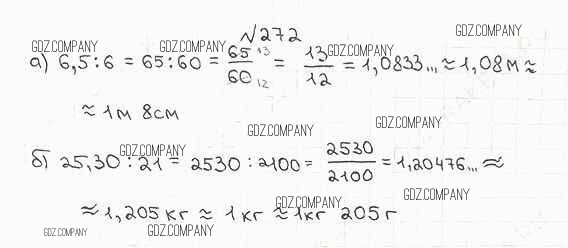 №272
GDZ.COMPANY
GDZ.COMPANY GDZ.COMPANY GDZ.COMPANY
а) 6,5:6 = 65:60 = 65 13 / 60 12 = 13/12 = 1,0833... ≈ 1,08м ≈
≈ 1м 8см
GDZ.COMPANY GDZ.COMPANY
GDZ.COMPANY
б) 25,30 : 21 = 2530 : 2100 = 2530/2100 = 1,20476... ≈
GDZ.COMPANY GDZ.COMPANY
≈ 1,205 кг ≈ 1 кг ≈ 1кг 205 г
GDZ.COMPANY GDZ.COMPANY